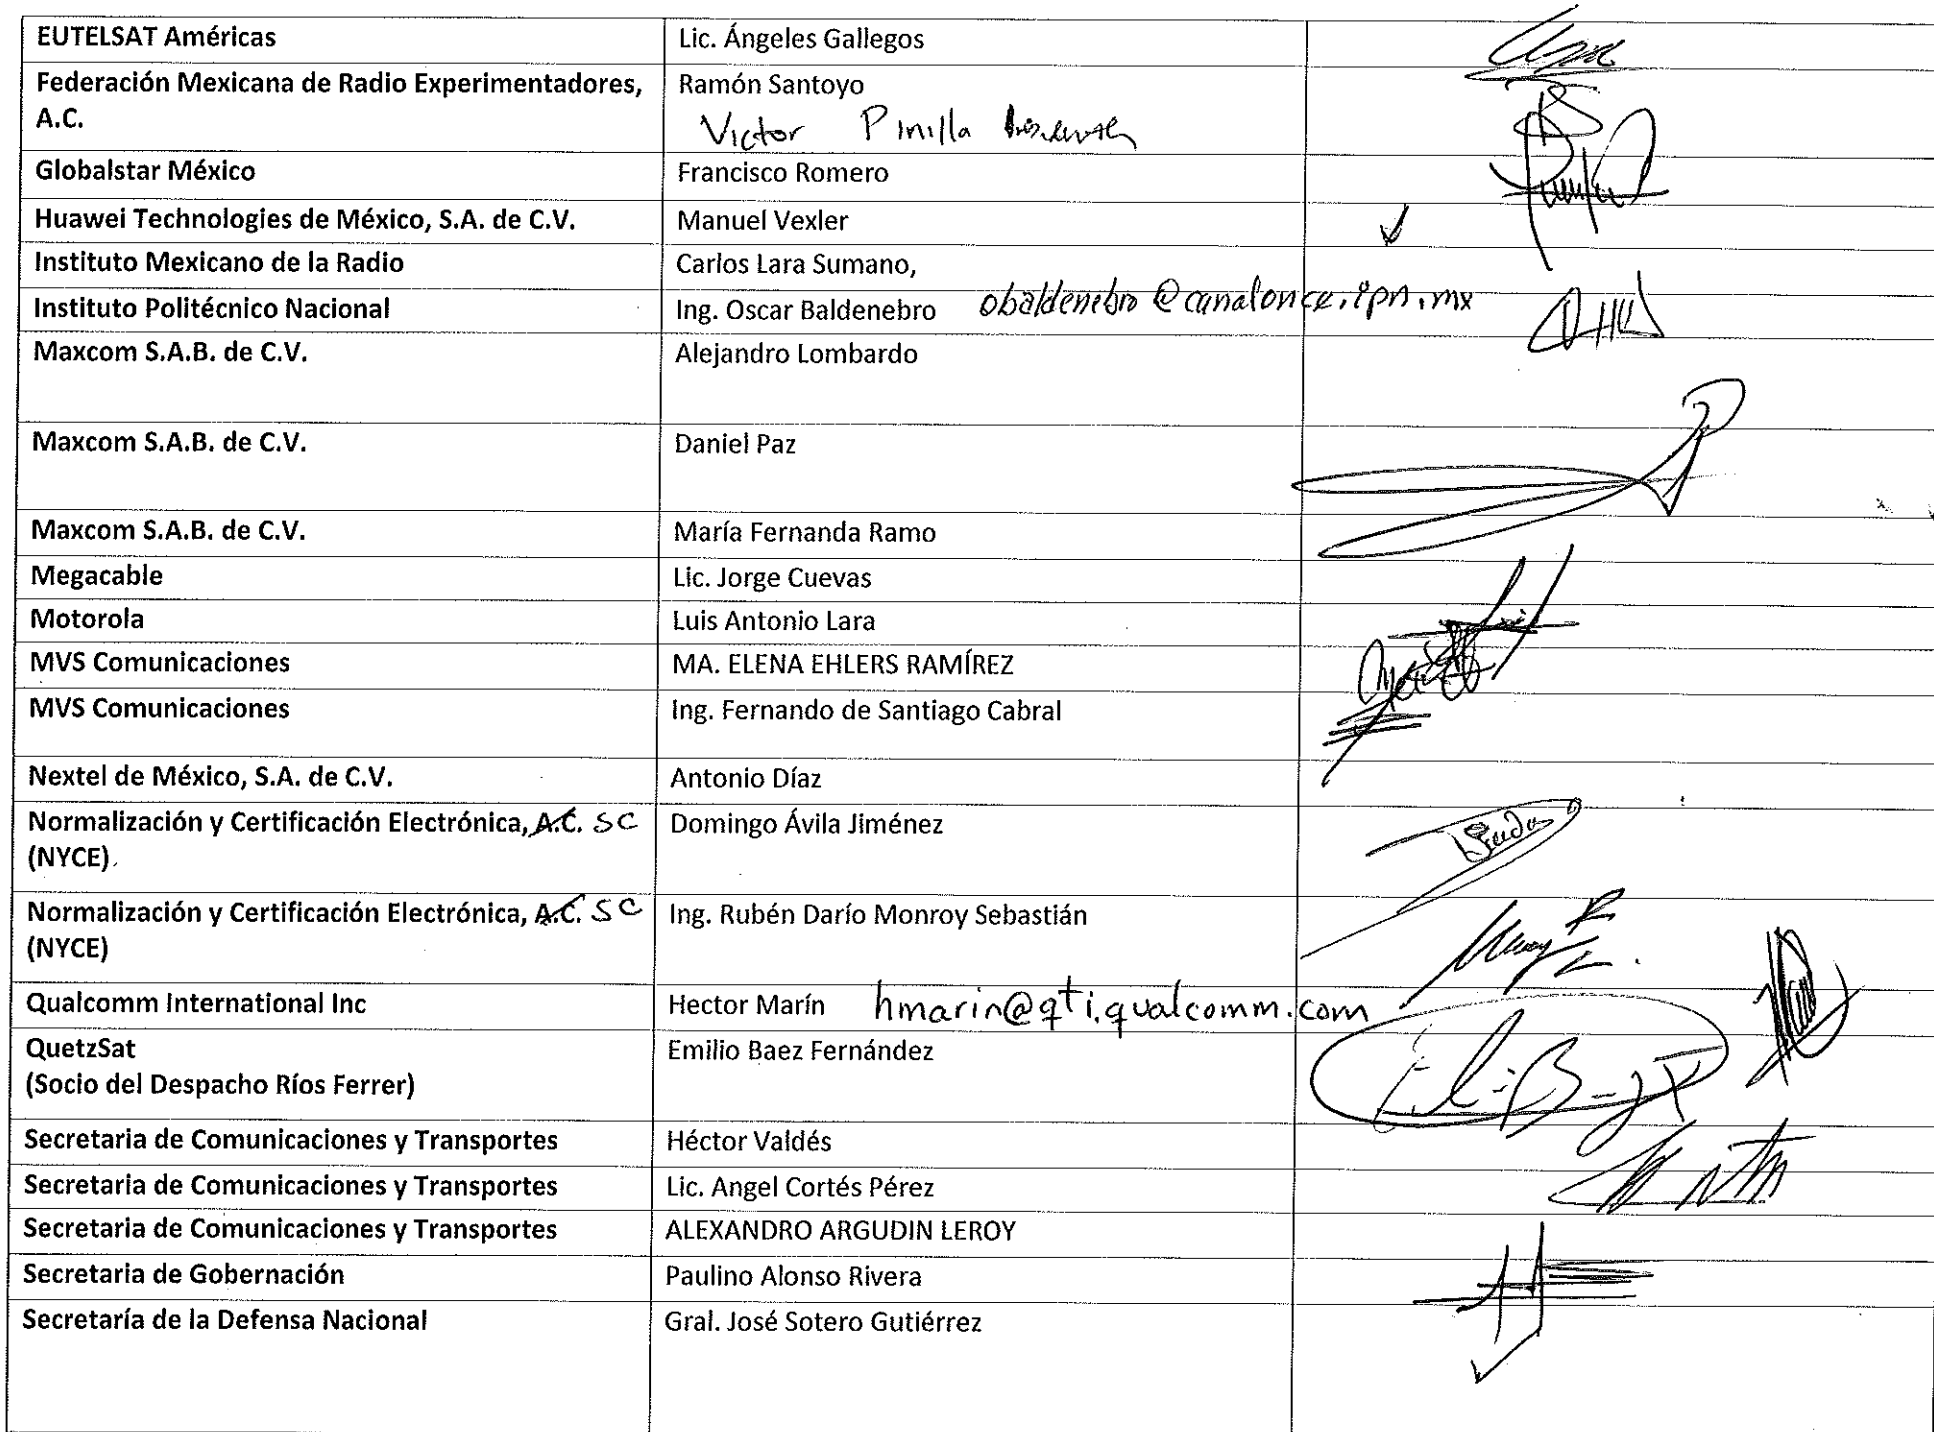 EUTELSAT Américas Lic. Ángeles Gallegos
Federación Mexicana de Radio Experimentadores, Ramón Santoyo
A.C. Victor Pinilla
Globalstar México Francisco Romero
Huawei Technologies de México, S.A. de C.V. Manuel Vexler ✓
Instituto Mexicano de la Radio Carlos Lara Sumano,
Instituto Politécnico Nacional Ing. Oscar Baldenebro obaldenebro@canalonce.ipn.mx
Maxcom S.A.B. de C.V. Alejandro Lombardo
Maxcom S.A.B. de C.V. Daniel Paz
Maxcom S.A.B. de C.V. María Fernanda Ramo
Megacable Lic. Jorge Cuevas
Motorola Luis Antonio Lara
MVS Comunicaciones MA. ELENA EHLERS RAMÍREZ
MVS Comunicaciones Ing. Fernando de Santiago Cabral
Nextel de México, S.A. de C.V. Antonio Díaz
Normalización y Certificación Electrónica, A.C. SC Domingo Ávila Jiménez
(NYCE)
Normalización y Certificación Electrónica, A.C. SC Ing. Rubén Darío Monroy Sebastián
(NYCE)
Qualcomm International Inc Hector Marín hmarin@qti.qualcomm.com
QuetzSat Emilio Baez Fernández
(Socio del Despacho Ríos Ferrer)
Secretaria de Comunicaciones y Transportes Héctor Valdés
Secretaria de Comunicaciones y Transportes Lic. Angel Cortés Pérez
Secretaria de Comunicaciones y Transportes ALEXANDRO ARGUDIN LEROY
Secretaria de Gobernación Paulino Alonso Rivera
Secretaría de la Defensa Nacional Gral. José Sotero Gutiérrez